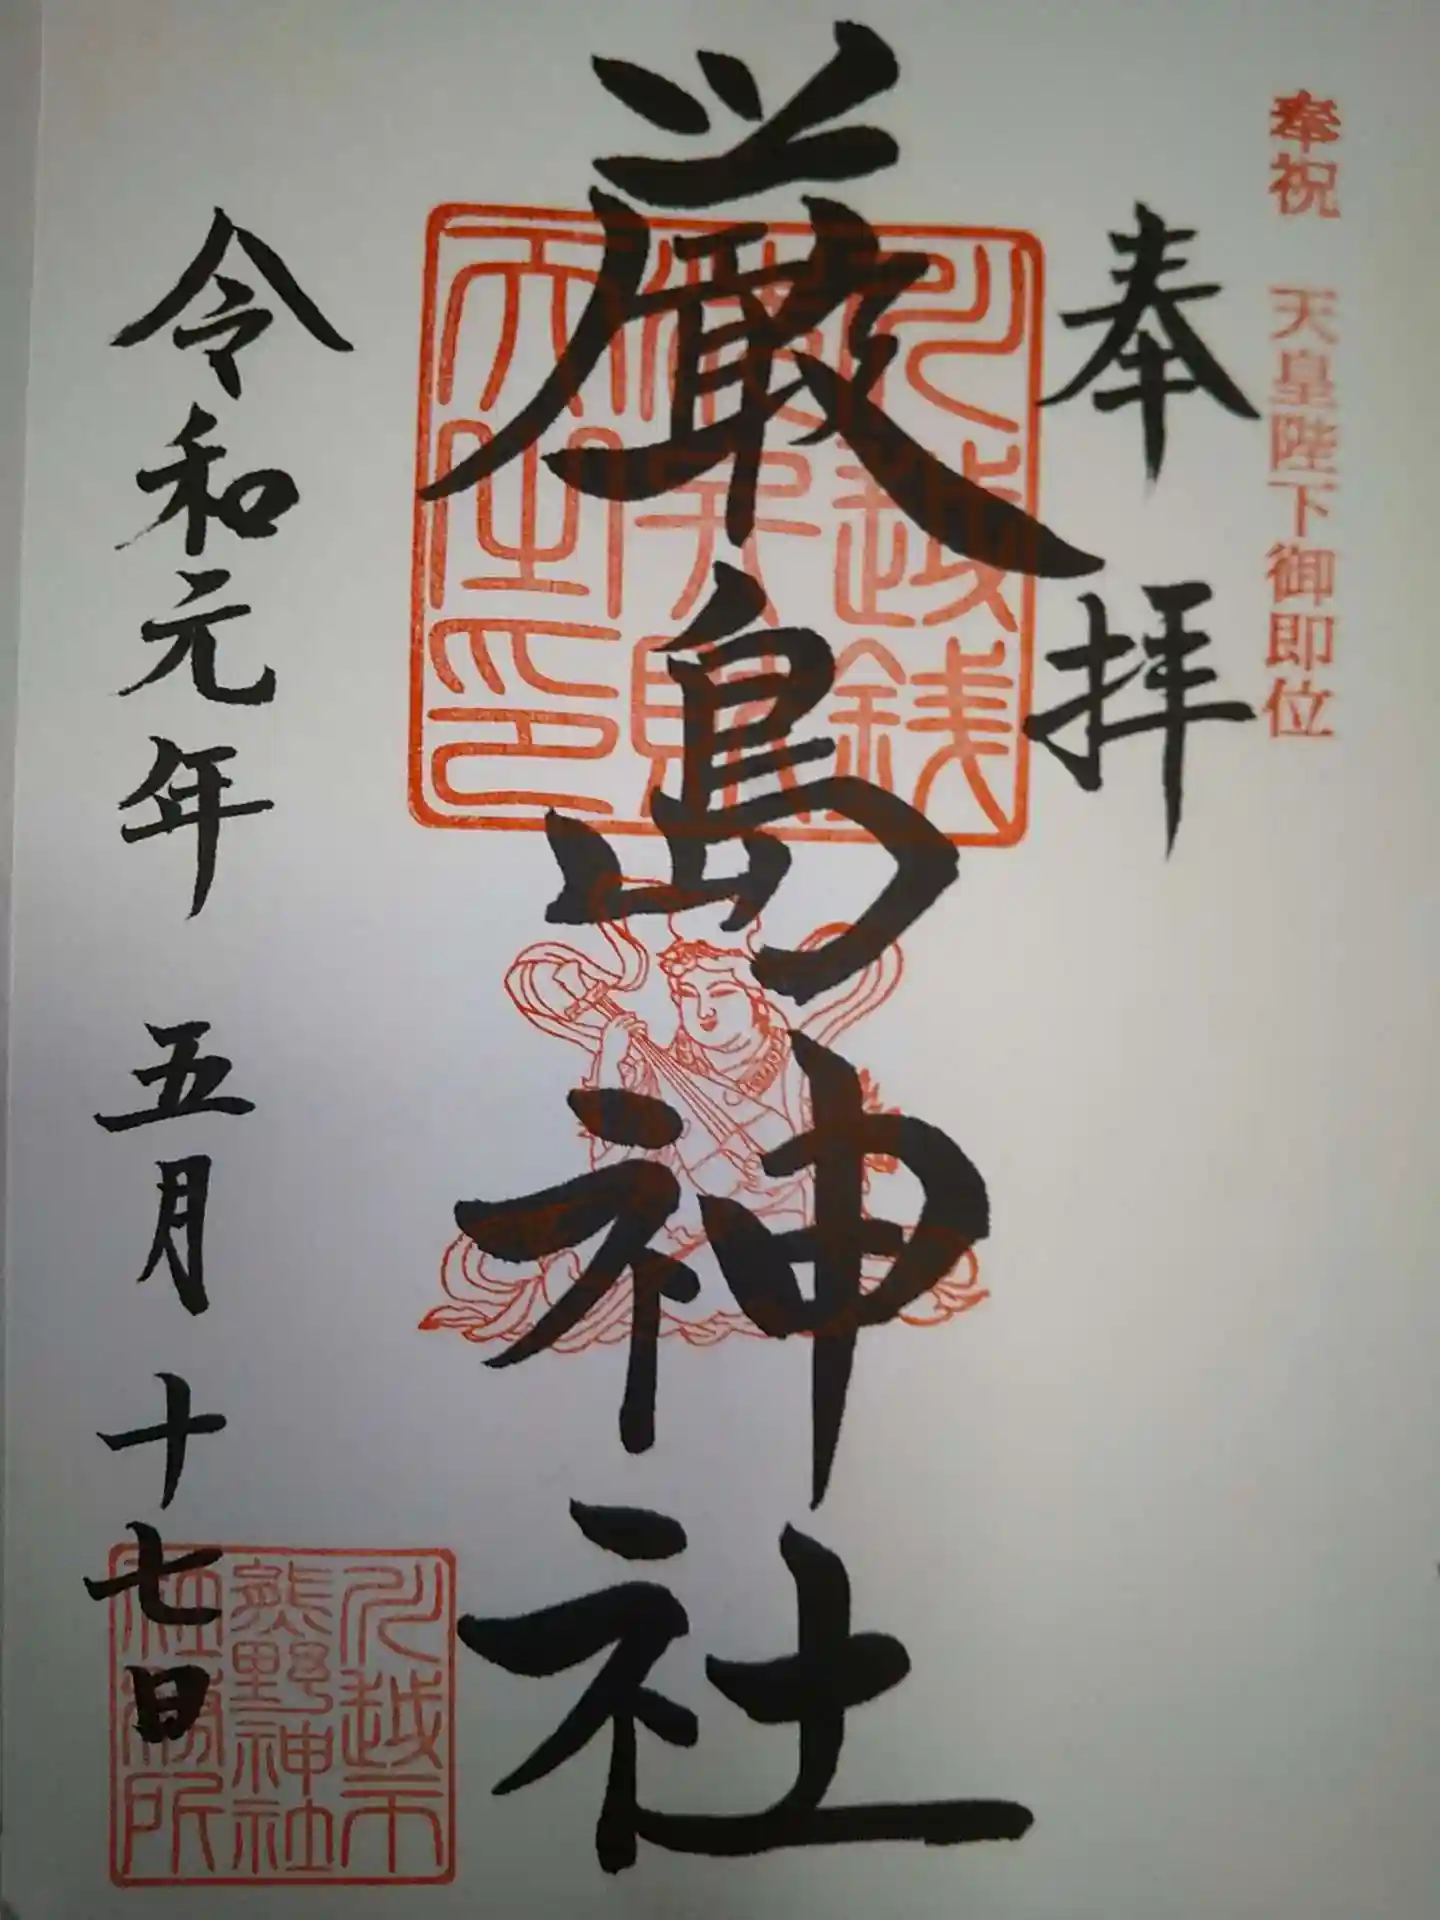 奉祝 天皇陛下御即位
奉拝
厳島神社
川越銭
洗弁財
天社印
令和元年 五月 十七日
川越市
熊野神社
社務所